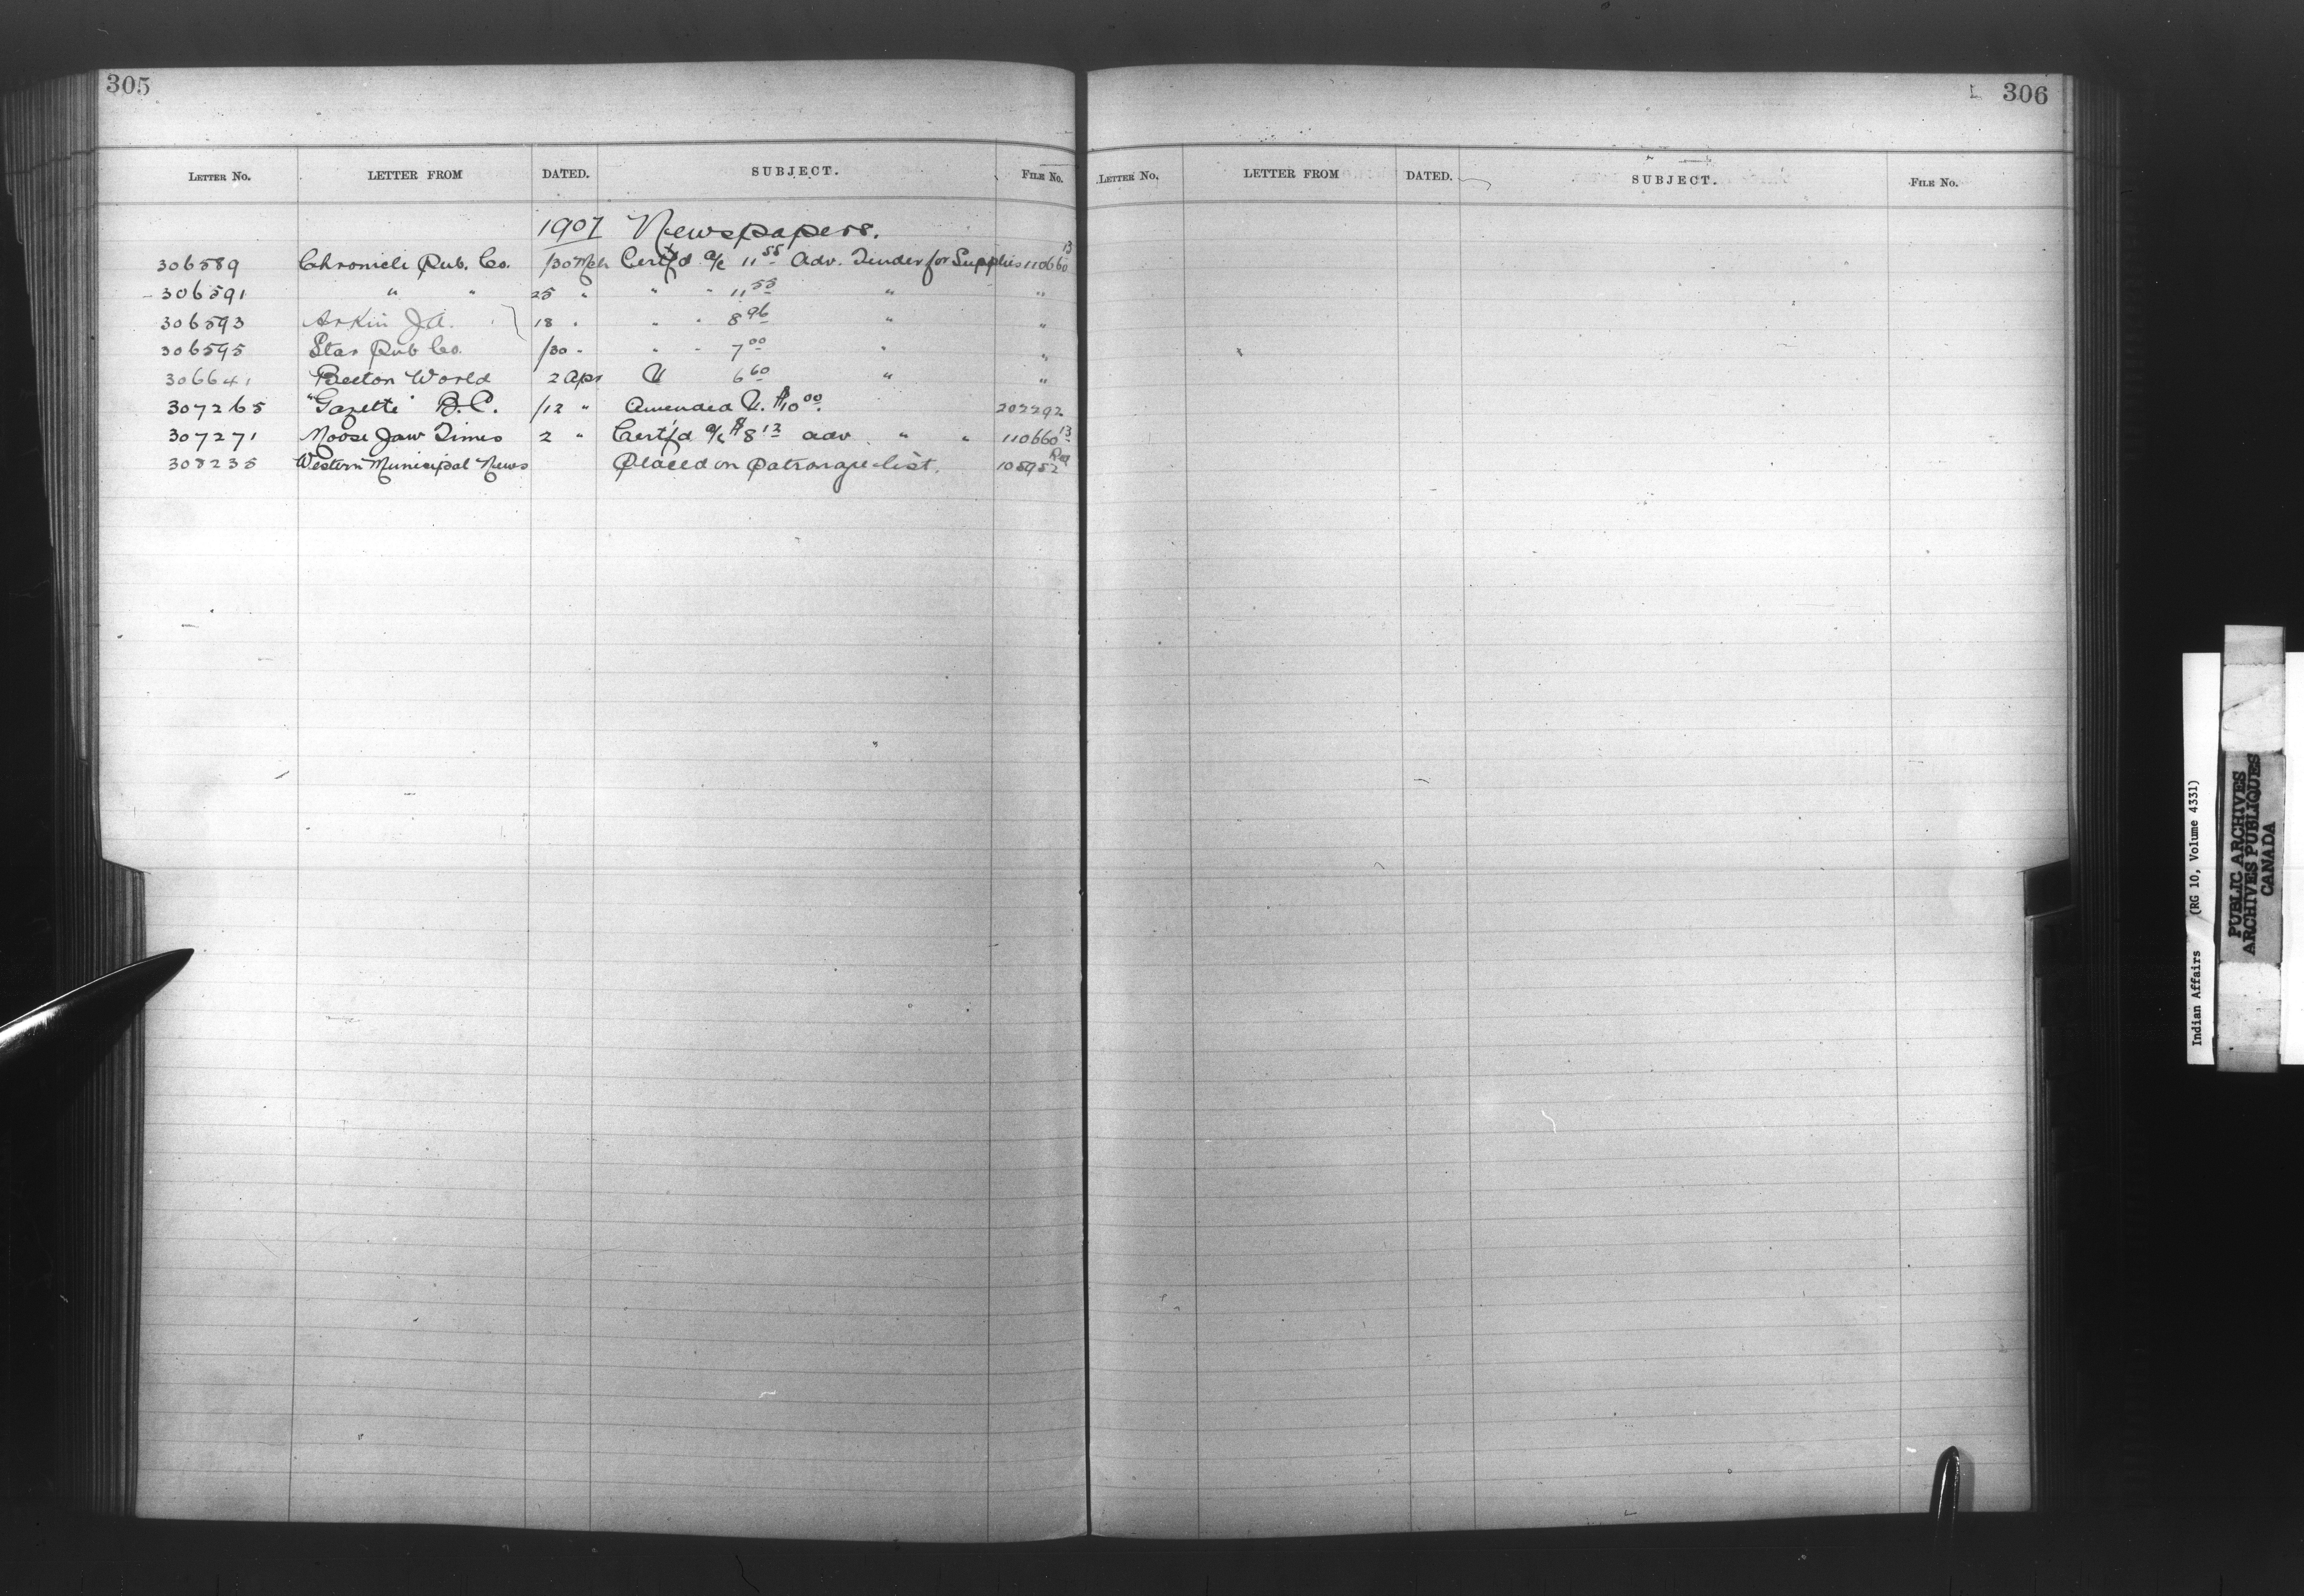 305
LETTER No. LETTER FROM DATED. SUBJECT. FILE No.
1907 Newspapers.
306589 Chronicle Pub. Co. /30 Mch Cert'f'd a/c 11 55 Adv. Tender for Supplies 110660 13
306591 " " 25 " " " 11 55 " "
306593 J.A. 18 " " " 8 96 " "
306595 Star Pub Co. /30 " " " 7 00 " "
306641 Beeton World 2 Apr 6 60 " "
307265 "Gazette" B.C. /12 " Amended $10 00. 202292
307271 Moose Jaw Times 2 " Cert'f'd a/c $8 12 adv. " " 110660 13
308235 Western Municipal News Placed on Patronage list.
306
LETTER No. LETTER FROM DATED. SUBJECT. FILE No.
Indian Affairs (RG 10, Volume 4331)
PUBLIC ARCHIVES
ARCHIVES PUBLIQUES
CANADA